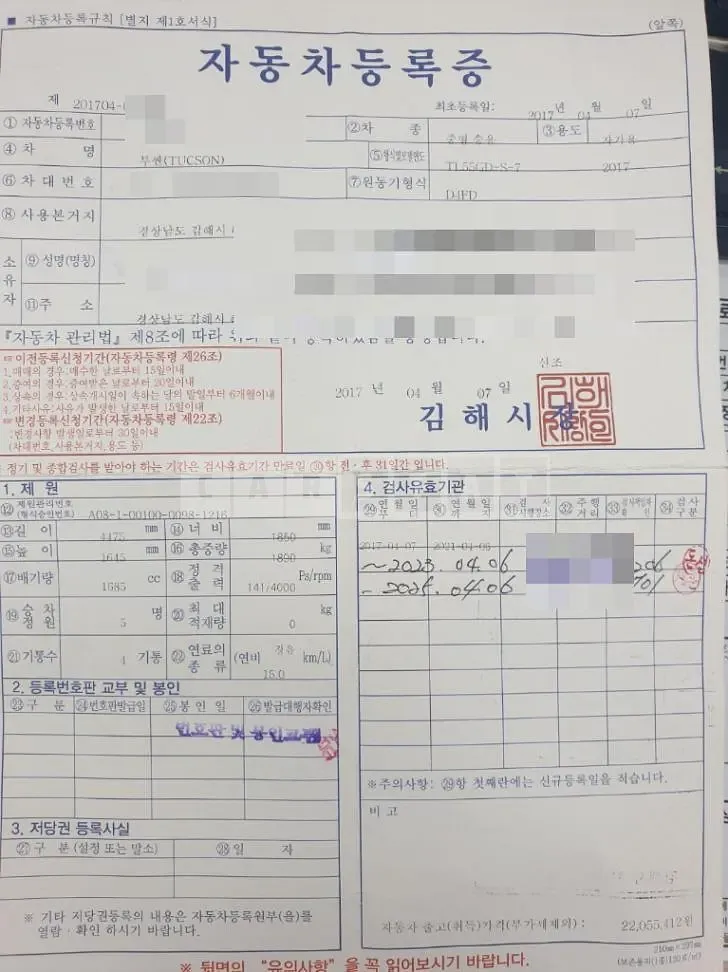 ■ 자동차등록규칙 [별지 제1호서식]
(앞쪽)
자동차등록증
제 201704-
최초등록일: 2017년 04월 07일
① 자동차등록번호
②차 종 중형 승용
③용도 자가용
④ 차 명 투싼(TUCSON)
⑤형식및모델연도 TL55GD-S-7 2017
⑥ 차대번호
⑦원동기형식 D4FD
⑧ 사용본거지 경상남도 김해시
소유자
⑨ 성명(명칭)
⑪주 소 경상남도 김해시
『자동차 관리법』 제8조에 따라
이전등록신청기간(자동차등록령 제26조)
1.매매의 경우:매수한 날로부터 15일이내
2.증여의 경우:증여받은 날로부터 20일이내
3.상속의 경우:상속개시일이 속하는 달의 말일부터 6개월이내
4.기타사유:사유가 발생한 날로부터 15일이내
변경등록신청기간(자동차등록령 제22조)
:변경사항 발생일로부터 30일이내
(차대번호,사용본거지,용도 등)
신조
2017 년 04 월 07 일
김해시장
정기 및 종합검사를 받아야 하는 기간은 검사유효기간 만료일 ㉚항 전·후 31일간 입니다.
1. 제 원
⑫ 제원관리번호
(형식승인번호) A08-1-00100-0098-1216
⑬길 이 4475 mm
⑭너 비 1850 mm
⑮높 이 1645 mm
⑯총중량 1890 kg
⑰배기량 1685 cc
⑱정격출력 141/4000 Ps/rpm
⑲승차정원 5 명
⑳최대적재량 0 kg
㉑기통수 4 기통
㉒연료의종류 경유 (연비 15.0 km/L)
2. 등록번호판 교부 및 봉인
㉓구 분 ㉔번호판발급일 ㉕봉 인 일 ㉖발급대행자확인
번호판 및 봉인교부
3. 저당권 등록사실
㉗구 분 (설정 또는 말소) ㉘일 자
※ 기타 저당권등록의 내용은 자동차등록원부(을)를
열람·확인 하시기 바랍니다.
4. 검사유효기관
㉙연월일부터 ㉚연월일까지 ㉛검사시행장소 ㉜주행거리 ㉝검사책임자확인 ㉞검사구분
2017-04-07 2021-04-06
~2023.04.06
~2025.04.06
※주의사항: ㉙항 첫째란에는 신규등록일을 적습니다.
비 고
자동차 출고(취득)가격(부가세제외): 22,055,412원
210㎜×297㎜
(보존용지(1종)120g/㎡)
※ 뒷면의 “유의사항” 을 꼭 읽어보시기 바랍니다.